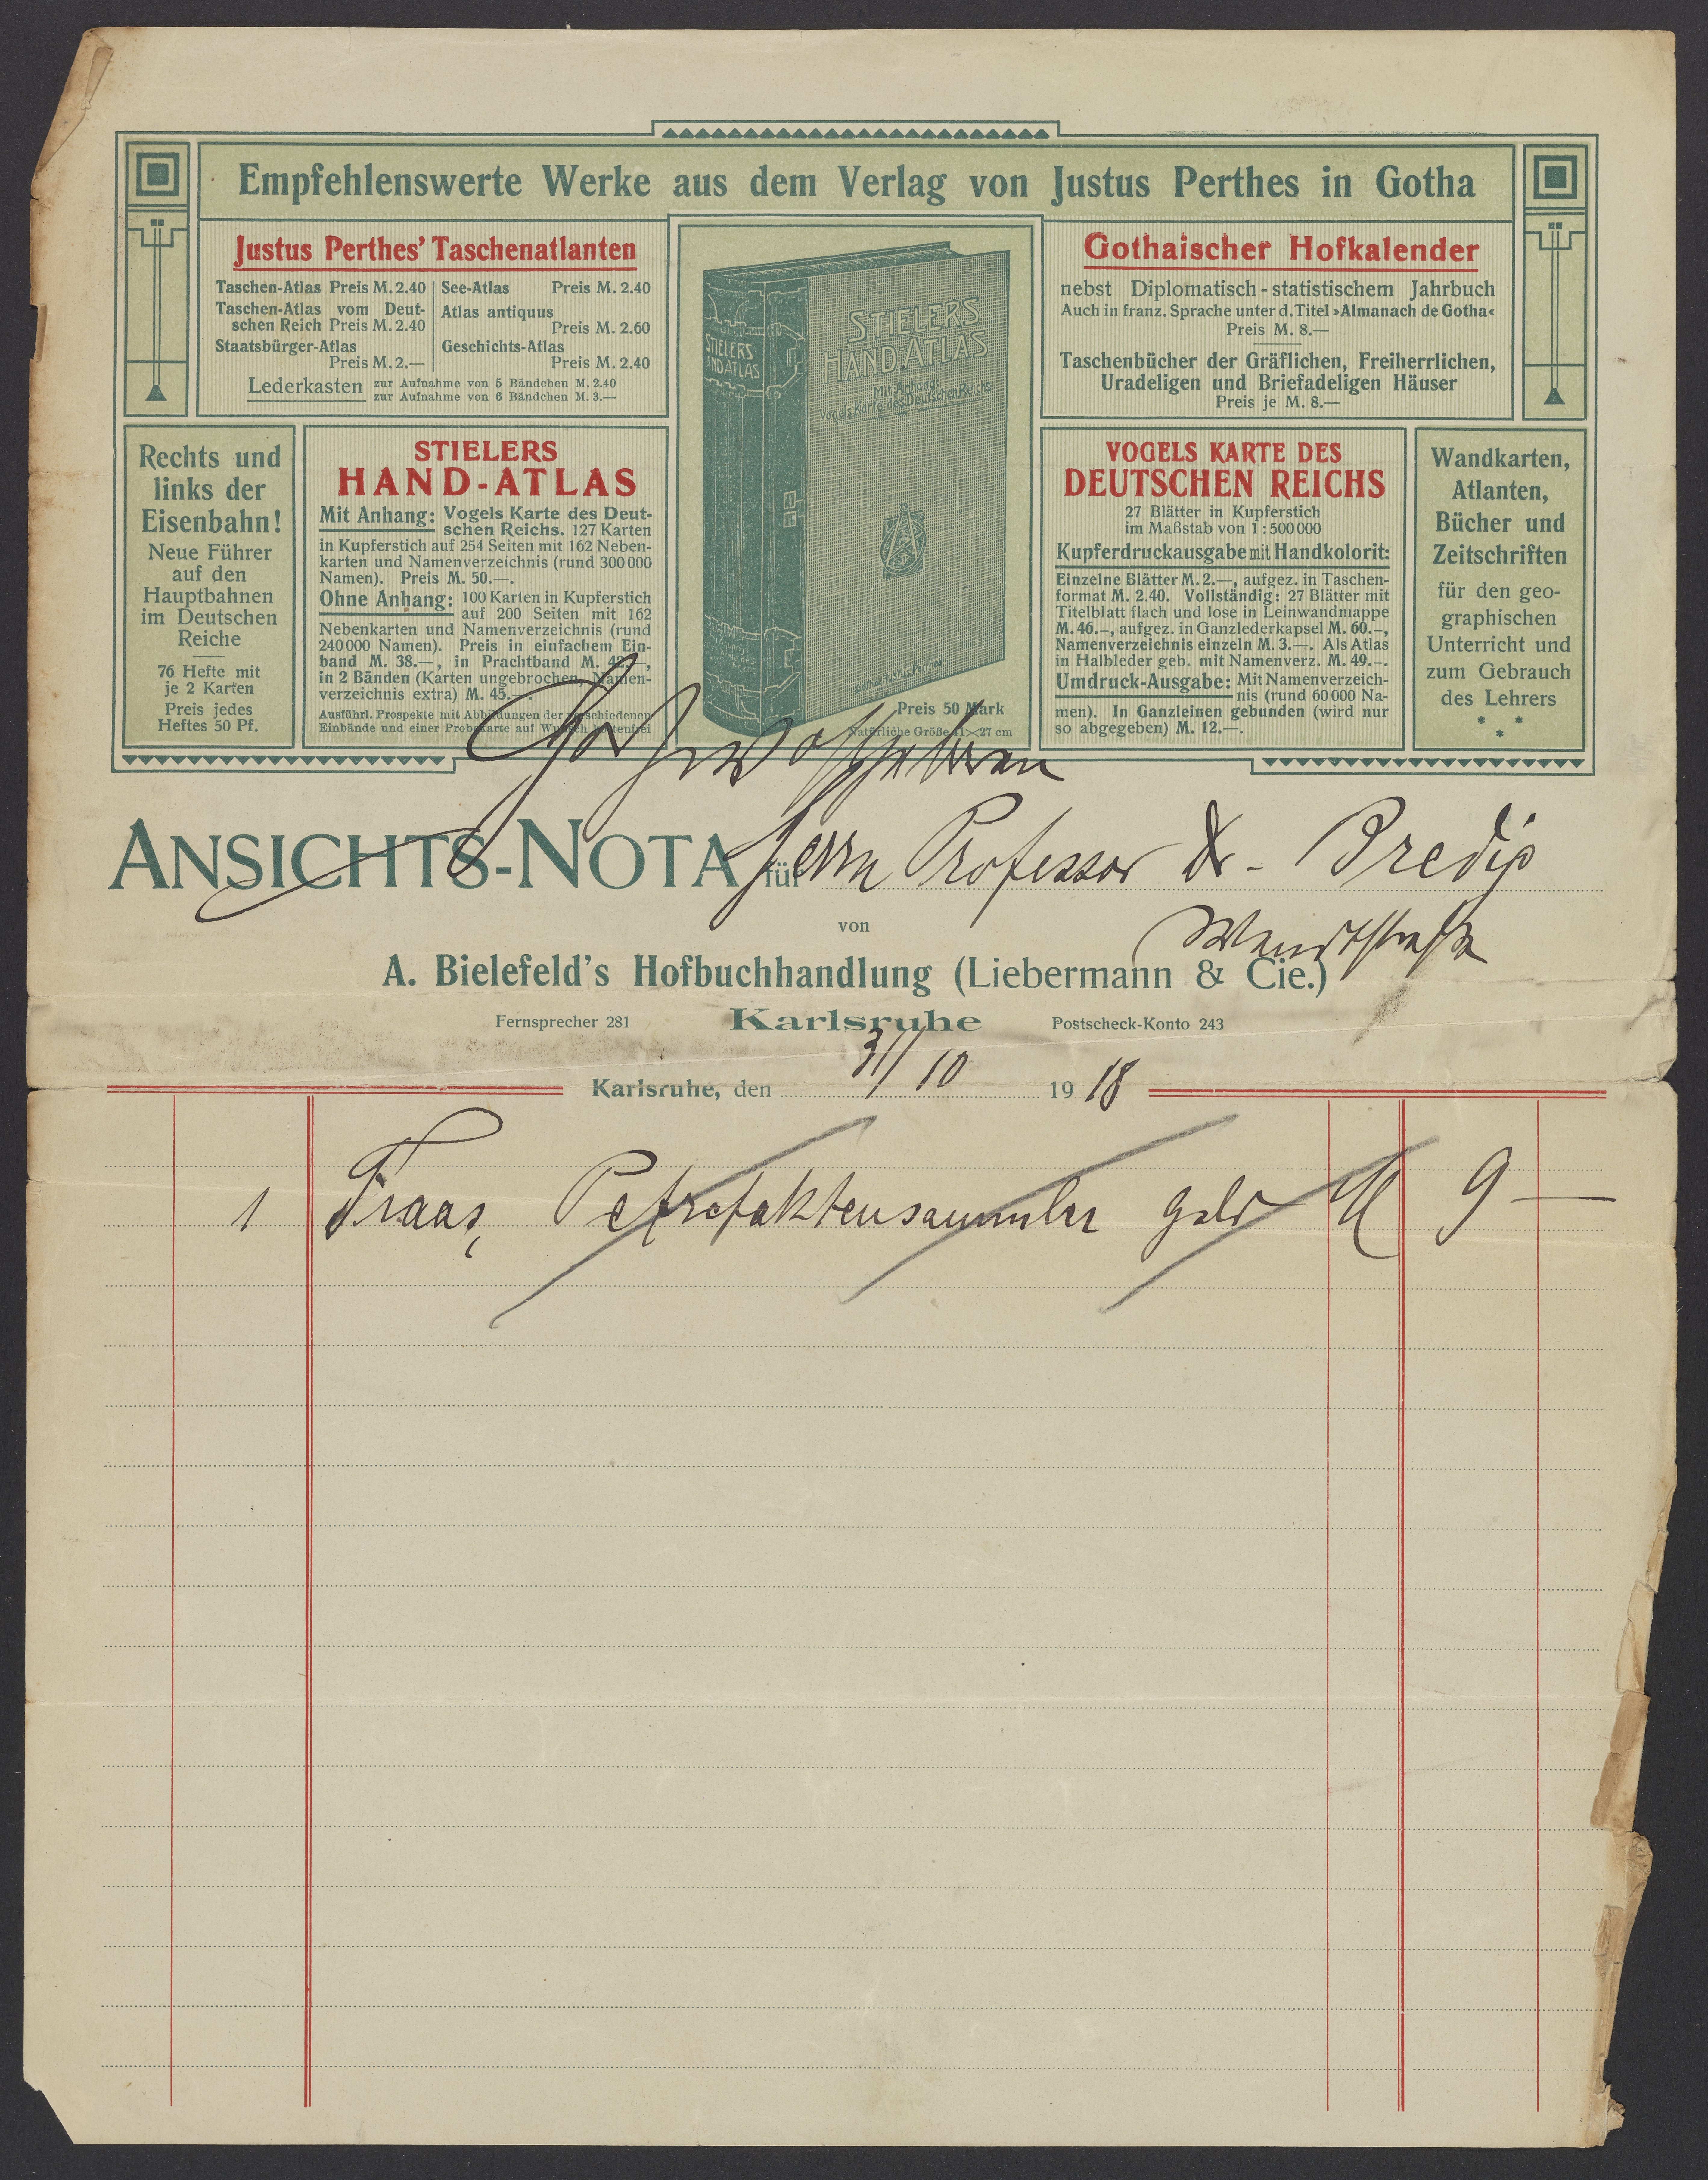 Empfehlenswerte Werke aus dem Verlag von Justus Perthes in Gotha
Justus Perthes' Taschenatlanten
Taschen-Atlas Preis M. 2.40
Taschen-Atlas vom Deut-
schen Reich Preis M. 2.40
Staatsbürger-Atlas
Preis M. 2.—
See-Atlas Preis M. 2.40
Atlas antiquus
Preis M. 2.60
Geschichts-Atlas
Preis M. 2.40
Lederkasten zur Aufnahme von 5 Bändchen M. 2.40
zur Aufnahme von 6 Bändchen M. 3.—
STIELERS
HAND-ATLAS
STIELERS
HAND-ATLAS
Mit Anhang:
Vogels Karte des Deutschen Reichs
Gotha: Justus Perthes
Preis 50 Mark
Natürliche Größe 41×27 cm
Gothaischer Hofkalender
nebst Diplomatisch-statistischem Jahrbuch
Auch in franz. Sprache unter d. Titel »Almanach de Gotha«
Preis M. 8.—
Taschenbücher der Gräflichen, Freiherrlichen,
Uradeligen und Briefadeligen Häuser
Preis je M. 8.—
Rechts und
links der
Eisenbahn!
Neue Führer
auf den
Hauptbahnen
im Deutschen
Reiche
76 Hefte mit
je 2 Karten
Preis jedes
Heftes 50 Pf.
STIELERS
HAND-ATLAS
Mit Anhang: Vogels Karte des Deut-
schen Reichs. 127 Karten
in Kupferstich auf 254 Seiten mit 162 Neben-
karten und Namenverzeichnis (rund 300 000
Namen). Preis M. 50.—.
Ohne Anhang: 100 Karten in Kupferstich
auf 200 Seiten mit 162
Nebenkarten und Namenverzeichnis (rund
240 000 Namen). Preis in einfachem Ein-
band M. 38.—, in Prachtband M. 42.—,
in 2 Bänden (Karten ungebrochen, Namen-
verzeichnis extra) M. 45.—.
Ausführl. Prospekte mit Abbildungen der verschiedenen
Einbände und einer Probekarte auf Wunsch kostenfrei
VOGELS KARTE DES
DEUTSCHEN REICHS
27 Blätter in Kupferstich
im Maßstab von 1 : 500 000
Kupferdruckausgabe mit Handkolorit:
Einzelne Blätter M. 2.—, aufgez. in Taschen-
format M. 2.40. Vollständig: 27 Blätter mit
Titelblatt flach und lose in Leinwandmappe
M. 46.—, aufgez. in Ganzlederkapsel M. 60.—,
Namenverzeichnis einzeln M. 3.—. Als Atlas
in Halbleder geb. mit Namenverz. M. 49.—.
Umdruck-Ausgabe: Mit Namenverzeich-
nis (rund 60 000 Na-
men). In Ganzleinen gebunden (wird nur
so abgegeben) M. 12.—.
Wandkarten,
Atlanten,
Bücher und
Zeitschriften
für den geo-
graphischen
Unterricht und
zum Gebrauch
des Lehrers
* * *
Hochwohlgeboren
ANSICHTS-NOTA für Herrn Professor Dr. Bredig
Wendtstraße
von
A. Bielefeld's Hofbuchhandlung (Liebermann & Cie.)
Fernsprecher 281 Karlsruhe Postscheck-Konto 243
Karlsruhe, den 31/10 1918
1 Fraas, Petrefaktensammler gebd M 9 —